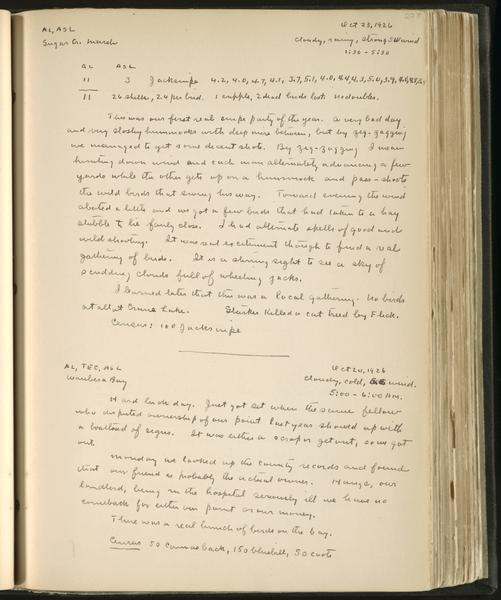 AL, ASL
Oct 23, 1926
Sugar Cr. Marsh
Cloudy, rainy, strong SW wind
1:30 - 5:30
AL ASL
11 3 Jacksnipe 4.2, 4.0, 4.7, 4.1, 3.7, 5.1, 4.0, 4.4, 4.3, 5.0, 3.9,
11 26 shells, 2.4 per bird. 1 cripple, 2 dead birds lost. No doubles.
This was our first real snipe party of the year. A very bad day
and very sloshy hummocks with deep mire between, but by zig-zagging
we managed to get some decent shots. By zig-zagging I mean
hunting down wind and each man alternately advancing a few
yards while the other gets up on a hummock and pass-shoots
the wild birds that swing his way. Toward evening the wind
abated a little and we got a few birds that had taken to a hay
stubble to lie fairly close. I had alternate spells of good and
wild shooting. It was real excitement though to find a real
gathering of birds. It is a stirring sight to see a sky of
scudding clouds full of wheeling jacks.
I learned later that this was a local gathering. No birds
at all at Lake. Starker killed a cat treed by Flick.
Census: 100 Jacksnipe
AL, TEC, ASL
Oct 24, 1926
Waubesa Bay
Cloudy, cold, wind.
5:00 - 6:00 AM.
Hard luck day. Just got set when the same fellow
who disputed ownership of our point last year showed up with
a boatload of decoys. It was either a scrap or get out, so we got
out.
Monday we looked up the county records and found
that our friend is probably the actual owner. our
landlord, being in the hospital seriously ill we have no
comeback for either our point or our money.
There was a real bunch of birds on the bay.
Census 50 canvasback, 150 bluebill, 50 coots